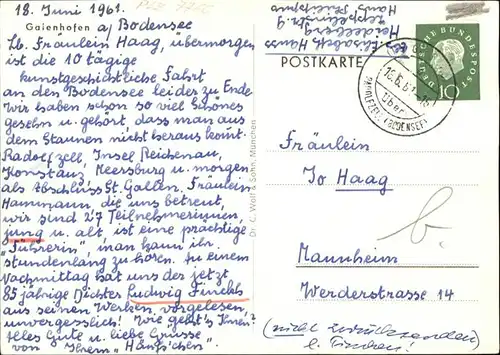 18. Juni 1961.
Gaienhofen a/ Bodensee
Lb. Fräulein Haag, übermorgen
ist die 10 tägige
kunstgeschichtliche Fahrt
an den Bodensee leider zu Ende
Wir haben schon so viel Schönes
gesehn u. gehört, dass man aus
dem Staunen nicht heraus kommt.
Radolfzell, Insel Reichenau,
Konstanz, Meersburg u. morgen
als Abschluss St. Gallen. Fräulein
Hammann, die uns betreut,
wir sind 27 Teilnehmerinnen,
jung u. alt, ist eine prächtige
"Führerin", man kann ihr
stundenlang zu hören. Zu einem
Nachmittag hat uns der jetzt
85 jährige Dichter Ludwig Finckh
aus seinen Werken, vorgelesen,
unvergesslich! Wie geht's Ihnen?
Alles Gute u. liebe Grüsse
von Ihrem "Hänschen".
Dr. C. Wolf & Sohn, München
Elisabeth Hans
Heidelberg
Zeppelinstr. 9
Haus
POSTKARTE
DEUTSCHE BUNDESPOST
10
Über
RADOLFZELL (BODENSEE)
Fräulein
Jo Haag
b.
Mannheim
Werderstrasse 14
(nicht zurückzusenden